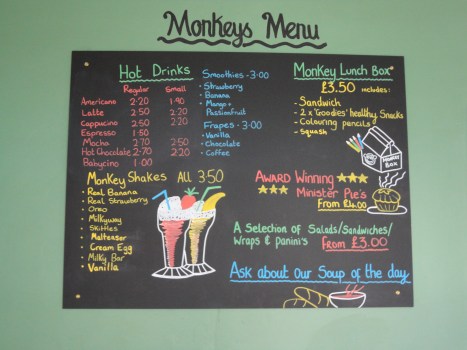 Monkeys Menu
Hot Drinks
Regular Small
Americano 2·20 1·90
Latte 2·50 2·20
Cappucino 2·50 2·20
Espresso 1·50
Mocha 2·70 2·50
Hot Chocolate 2·20 2·20
Babycino 1·00
Smoothies - 3·00
• Strawberry
• Banana
• Mango +
Passionfruit
Frapes - 3·00
• Vanilla
• Chocolate
• Coffee
Monkey Shakes ALL 3·50
• Real Banana
• Real Strawberry
• Oreo
• Milkyway
• Skittles
• Malteaser
• Cream Egg
• Milky Bar
• Vanilla
Monkey Lunch Box
£3.50 includes:
- Sandwich
- 2 x 'Goodies' healthy Snacks
- Colouring pencils
- Squash
MONKEY
BOX
AWARD Winning
Minister Pie's
From £4.00
A Selection of Salads/Sandwiches/
Wraps & Panini's From £3.00
Ask about Our Soup of the day